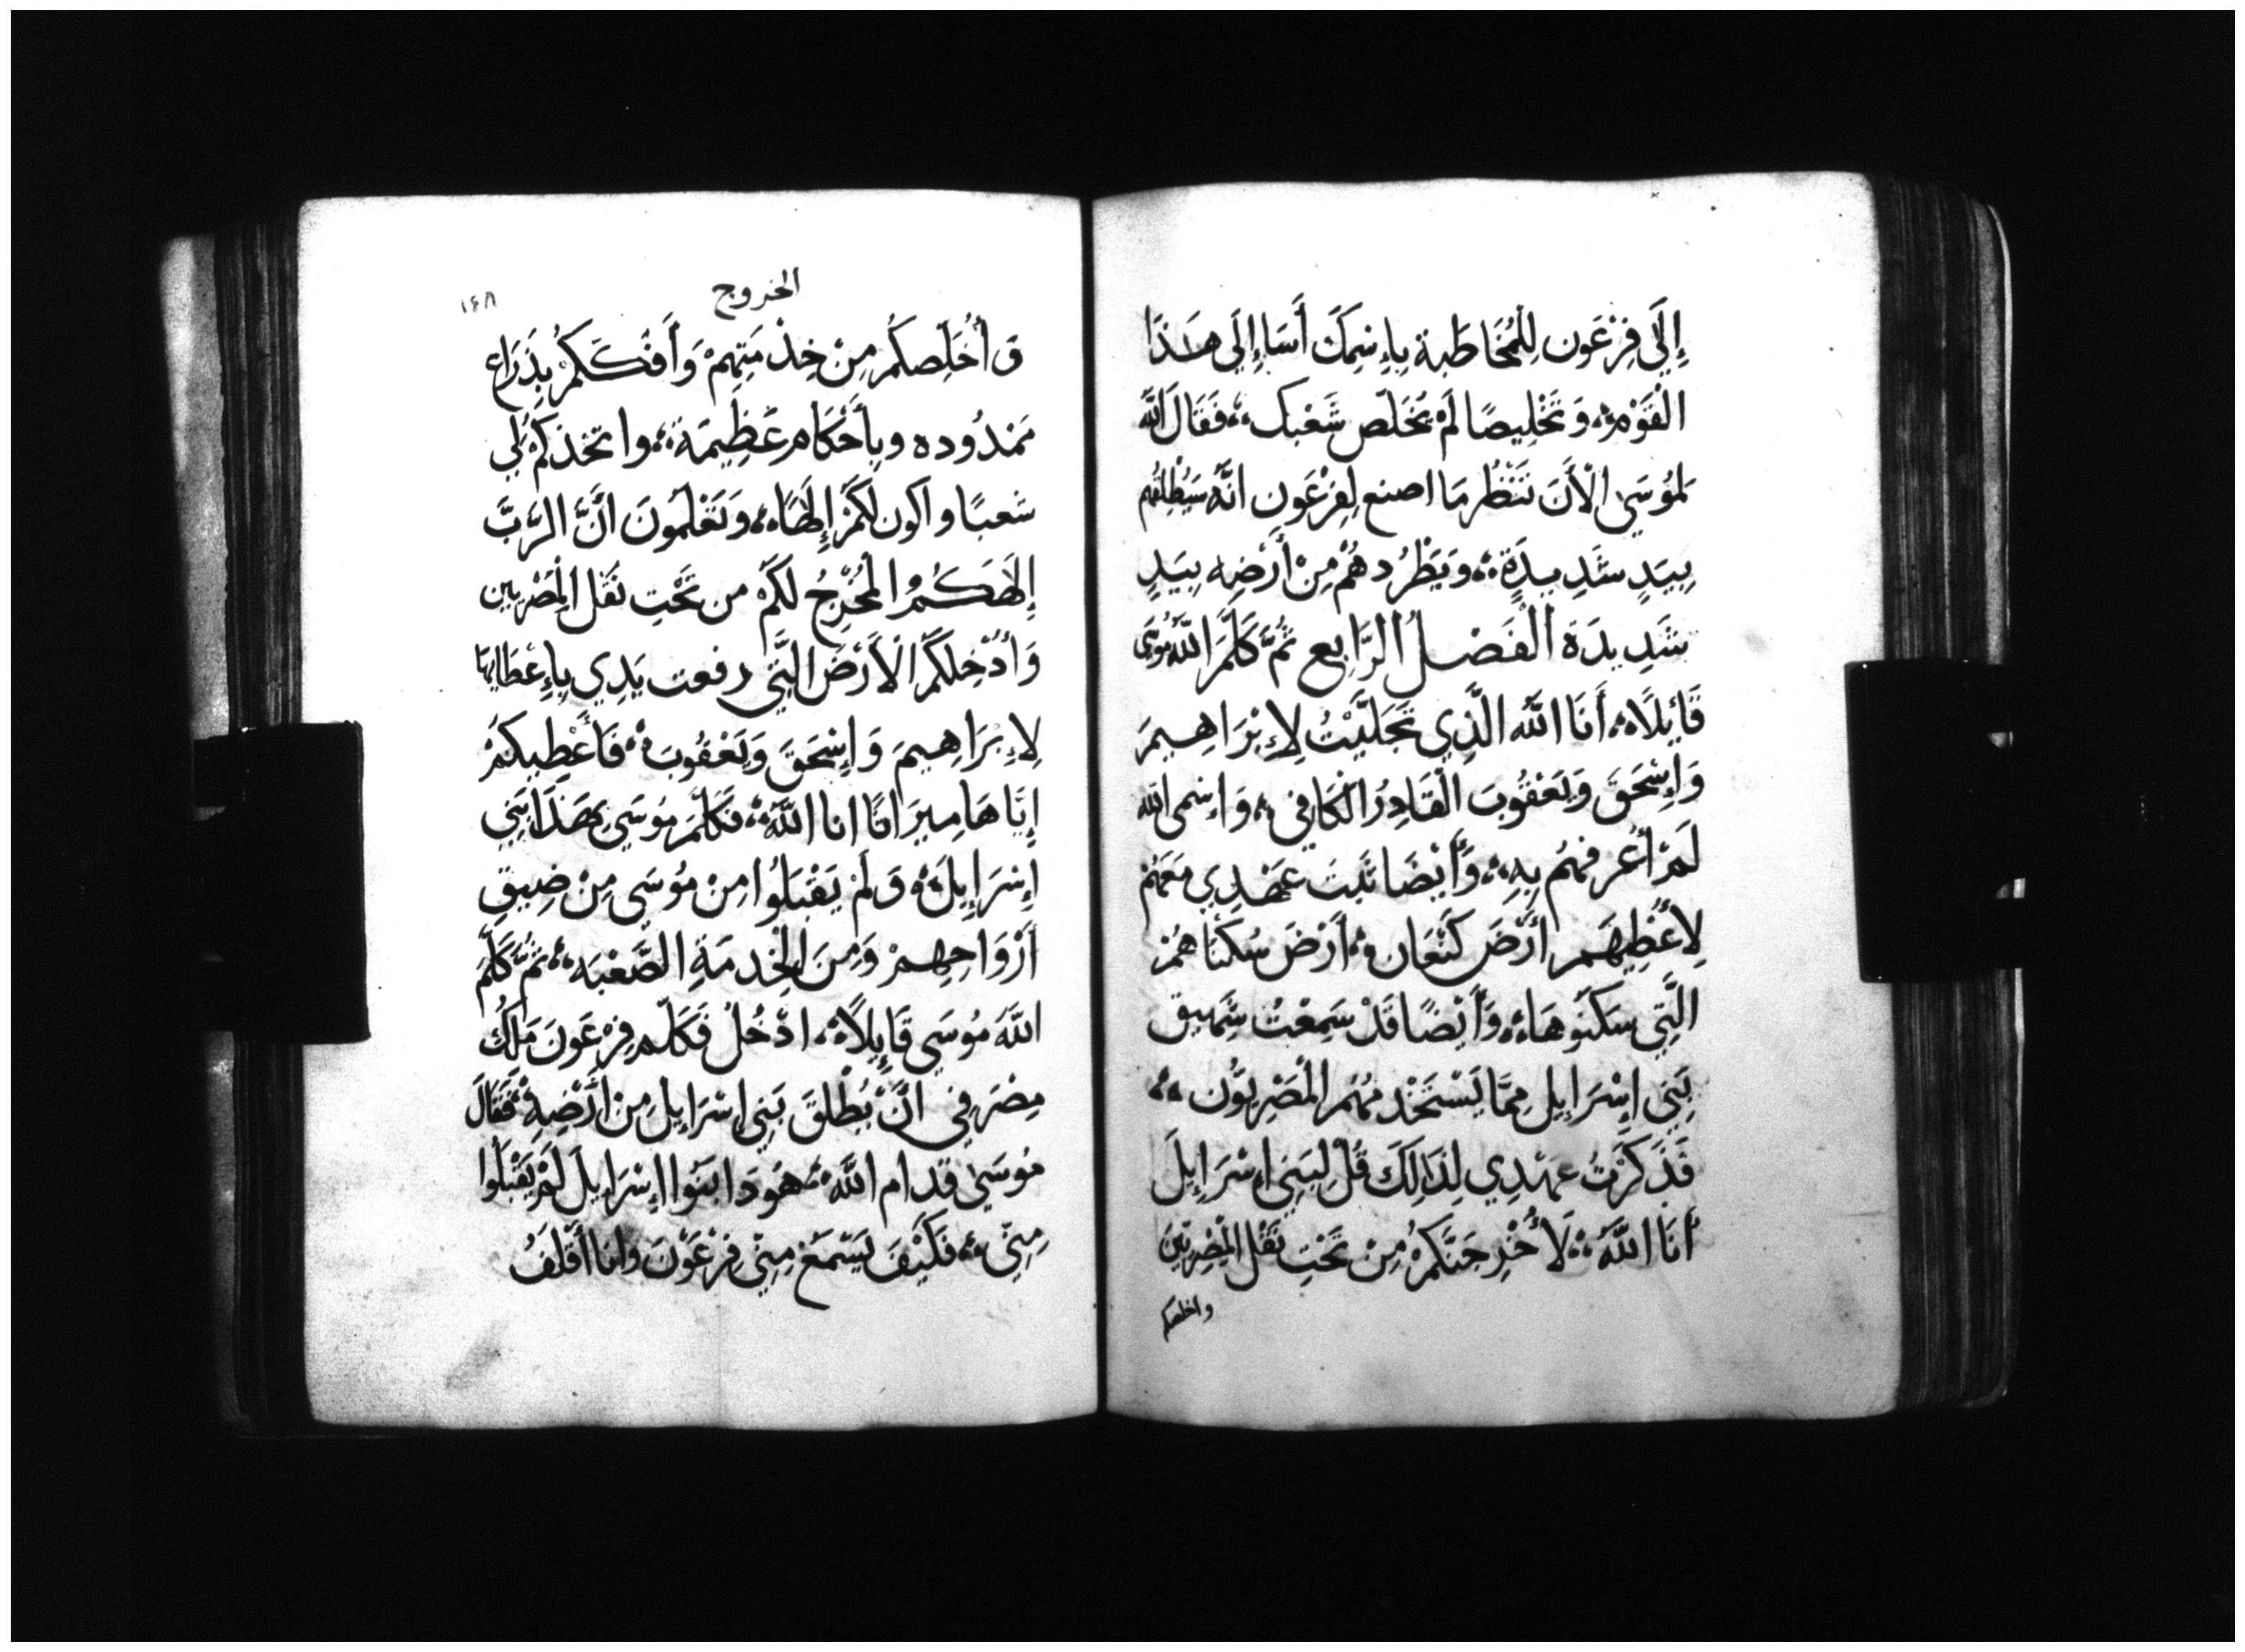 إِلَى فِرْعَون لِلْمُخَاطَبة بِاِسْمِكَ أَسَا إِلَى هَذَا
الْقَوْمِ، وَتَخْلِيصًا لَمْ تُخَلّص شَعْبك، فَقَالَ اللَّه
لمُوسَى الْأَنَ تَنْظُر مَا اصنع لِفِرْعَون انَّهُ سَيُطْلِقُهم
بِيَدٍ شَدِيدَةٍ، وَيَطْرُدهُمْ مِنْ أَرْضِه بِيَدٍ
شَدِيدَة الْفَصْلُ الرَّابِع ثُمَّ كَلَّمَ اللَّهُ مُوسَى
قَايِلًا، أَنَا اللَّه الَّذِي تَجَلَّيْتُ لِاِبْرَاهِيمَ
وَاِسْحَقَ وَيَعْقُوبَ الْقَادِرُ الْكَافِي، وَاِسْمى اللَّه
لَمْ أُعرفهُم بِهِ، وَأَيْضًا ثَبَتَ عَهْدِي مَعَهُمْ
لِأُعْطِيهَم أَرْضَ كَنْعَان، أَرْضَ سُكْنَاهُمْ
الَّتِي سَكَنُوهَا، وَأَيْضًا قَدْ سَمِعْتُ شَهِيق
بَنِي اِسْرَايِل مِمَّا يَسْتَخْدمُهُم الْمَصْرِيُّون،
فَذَكَرْتُ عهْدِي لِذَالِكَ قُلْ لِبَنِي اِسْرَايِلَ
أَنَا اللَّهُ، لَأُخْرِجَنَّكُمْ مِنْ تَحْتِ ثقْل الْمِصْرِيّيَن
واخلصكم
الخروج
١٤٨
وَأُخَلِّصكُم مِنْ خِدْمَتِهِمْ وَأَفُكّكَمُ بِذَرَاع
مَمْدُوده وبأَحْكَام عَظِيمَة، واتخذكُمْ لِي
شعبًا واكون لَكُمْ إِلَهًا، وَتَعْلَمُونَ أَنَّ الرَّبَّ
إِلَهَكُمُ الْمُخْرِجُ لَكُمْ من تَحْتِ ثقْل الْمَصْريين
وَأُدْخِلكُمُ الْأَرْضَ الَّتِي رفعت يَدِي بِاِعْطَايهَا
لِاِبْرَاهِيمَ وَاِسْحَقَ وَيَعْقُوبَ، فَأُعْطِيكُمْ
إِيَّاهَا مِيرَاثًا انا اللَّهُ، فَكَلَّمَ مُوسَى بِهَذَا بَنِي
اِسْرَايِلَ، وَلَمْ يَقْبَلُوا مِنْ مُوسَى مِنْ ضِيقِ
أَرْوَاحِهِمْ وَمِنَ الْخِدمَةِ الصَّعْبَه، ثُمَّ كَلَّمَ
اللَّهَ مُوسَى قَايِلًا، ادْخُلْ فَكَلّم فِرْعَونَ مَلِكَ
مِصْرَ فِي أَنْ يُطْلِقَ بَنِي اِسْرَايِلَ مِنْ أَرْضِهِ، فَقَالَ
مُوسَى قدام اللَّه، هُوَذَا بَنُوا اِسْرَايِلَ لَمْ يَقْبَلُوا
مِنِّي، فَكَيْفَ يَسْمَعْ مِنِّي فِرْعَوْنَ وانَا أَقْلَفُ